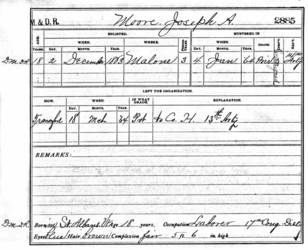 M. & D. R. Moore, Joseph A. 2885
ENLISTED. MUSTERED IN
WHEN. WHERE. WHEN.
DAY. MONTH. YEAR. DAY. MONTH.
18 2 December 1863 Malone 3 4 Jan 64
LEFT THE ORGANIZATION.
HOW. WHEN. EXPLANATION.
DAY. MONTH. YEAR.
Transf'd 18 Mch 64 Pvt to Co. H. 13th Arty
REMARKS:
Born in St Albans Vt Age 18 years. Occupation Laborer 17th Cong Dist
Eyes Blue Hair brown Complexion fair 5 ft 6 in high